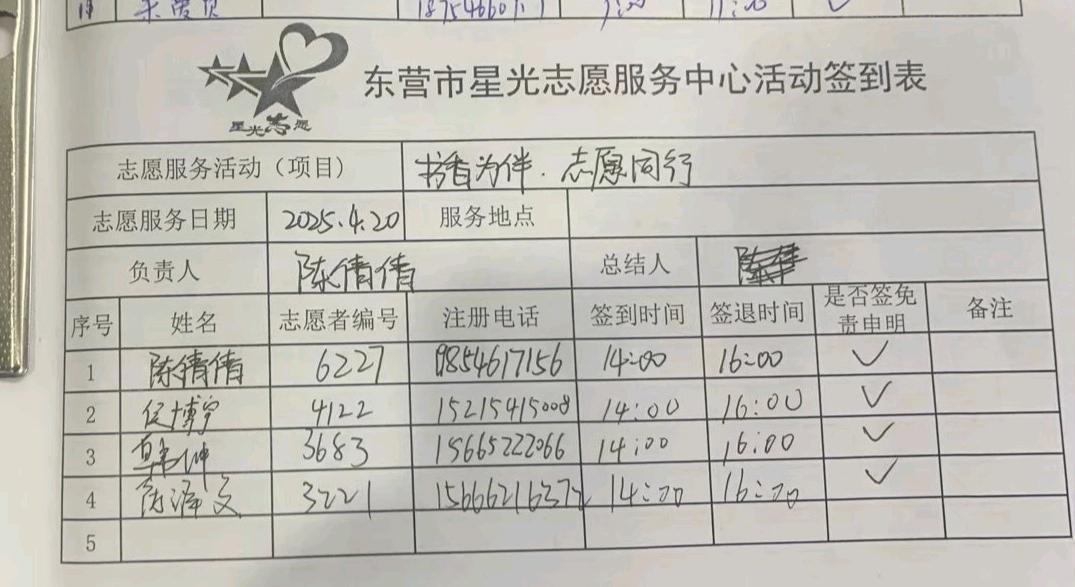 11:00
东营市星光志愿服务中心活动签到表
星光志愿
志愿服务活动（项目） 书香为伴．志愿同行
志愿服务日期 2025.4.20 服务地点
负责人 陈倩倩 总结人
序号 姓名 志愿者编号 注册电话 签到时间 签退时间 是否签免责申明 备注
1 陈倩倩 6227 19854617156 14:00 16:00 ✓
2 侯博宇 4122 15215415008 14:00 16:00 ✓
3 韩坤 3683 15665222066 14:00 16:00 ✓
4 泽文 3221 14:00 16:00 ✓
5